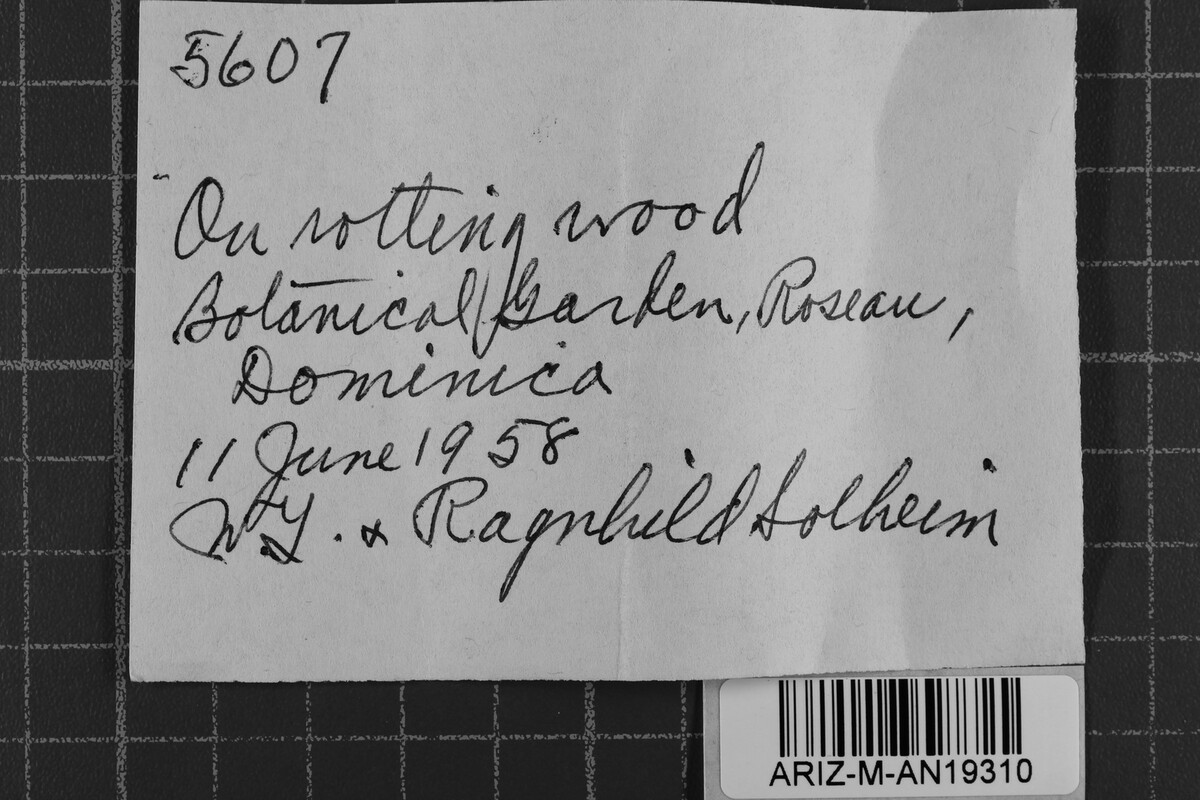 5607
On rotting wood
Botanical Garden, Roseau,
Dominica
11 June 1958
W.G. & Ragnhild Solheim
ARIZ-M-AN19310